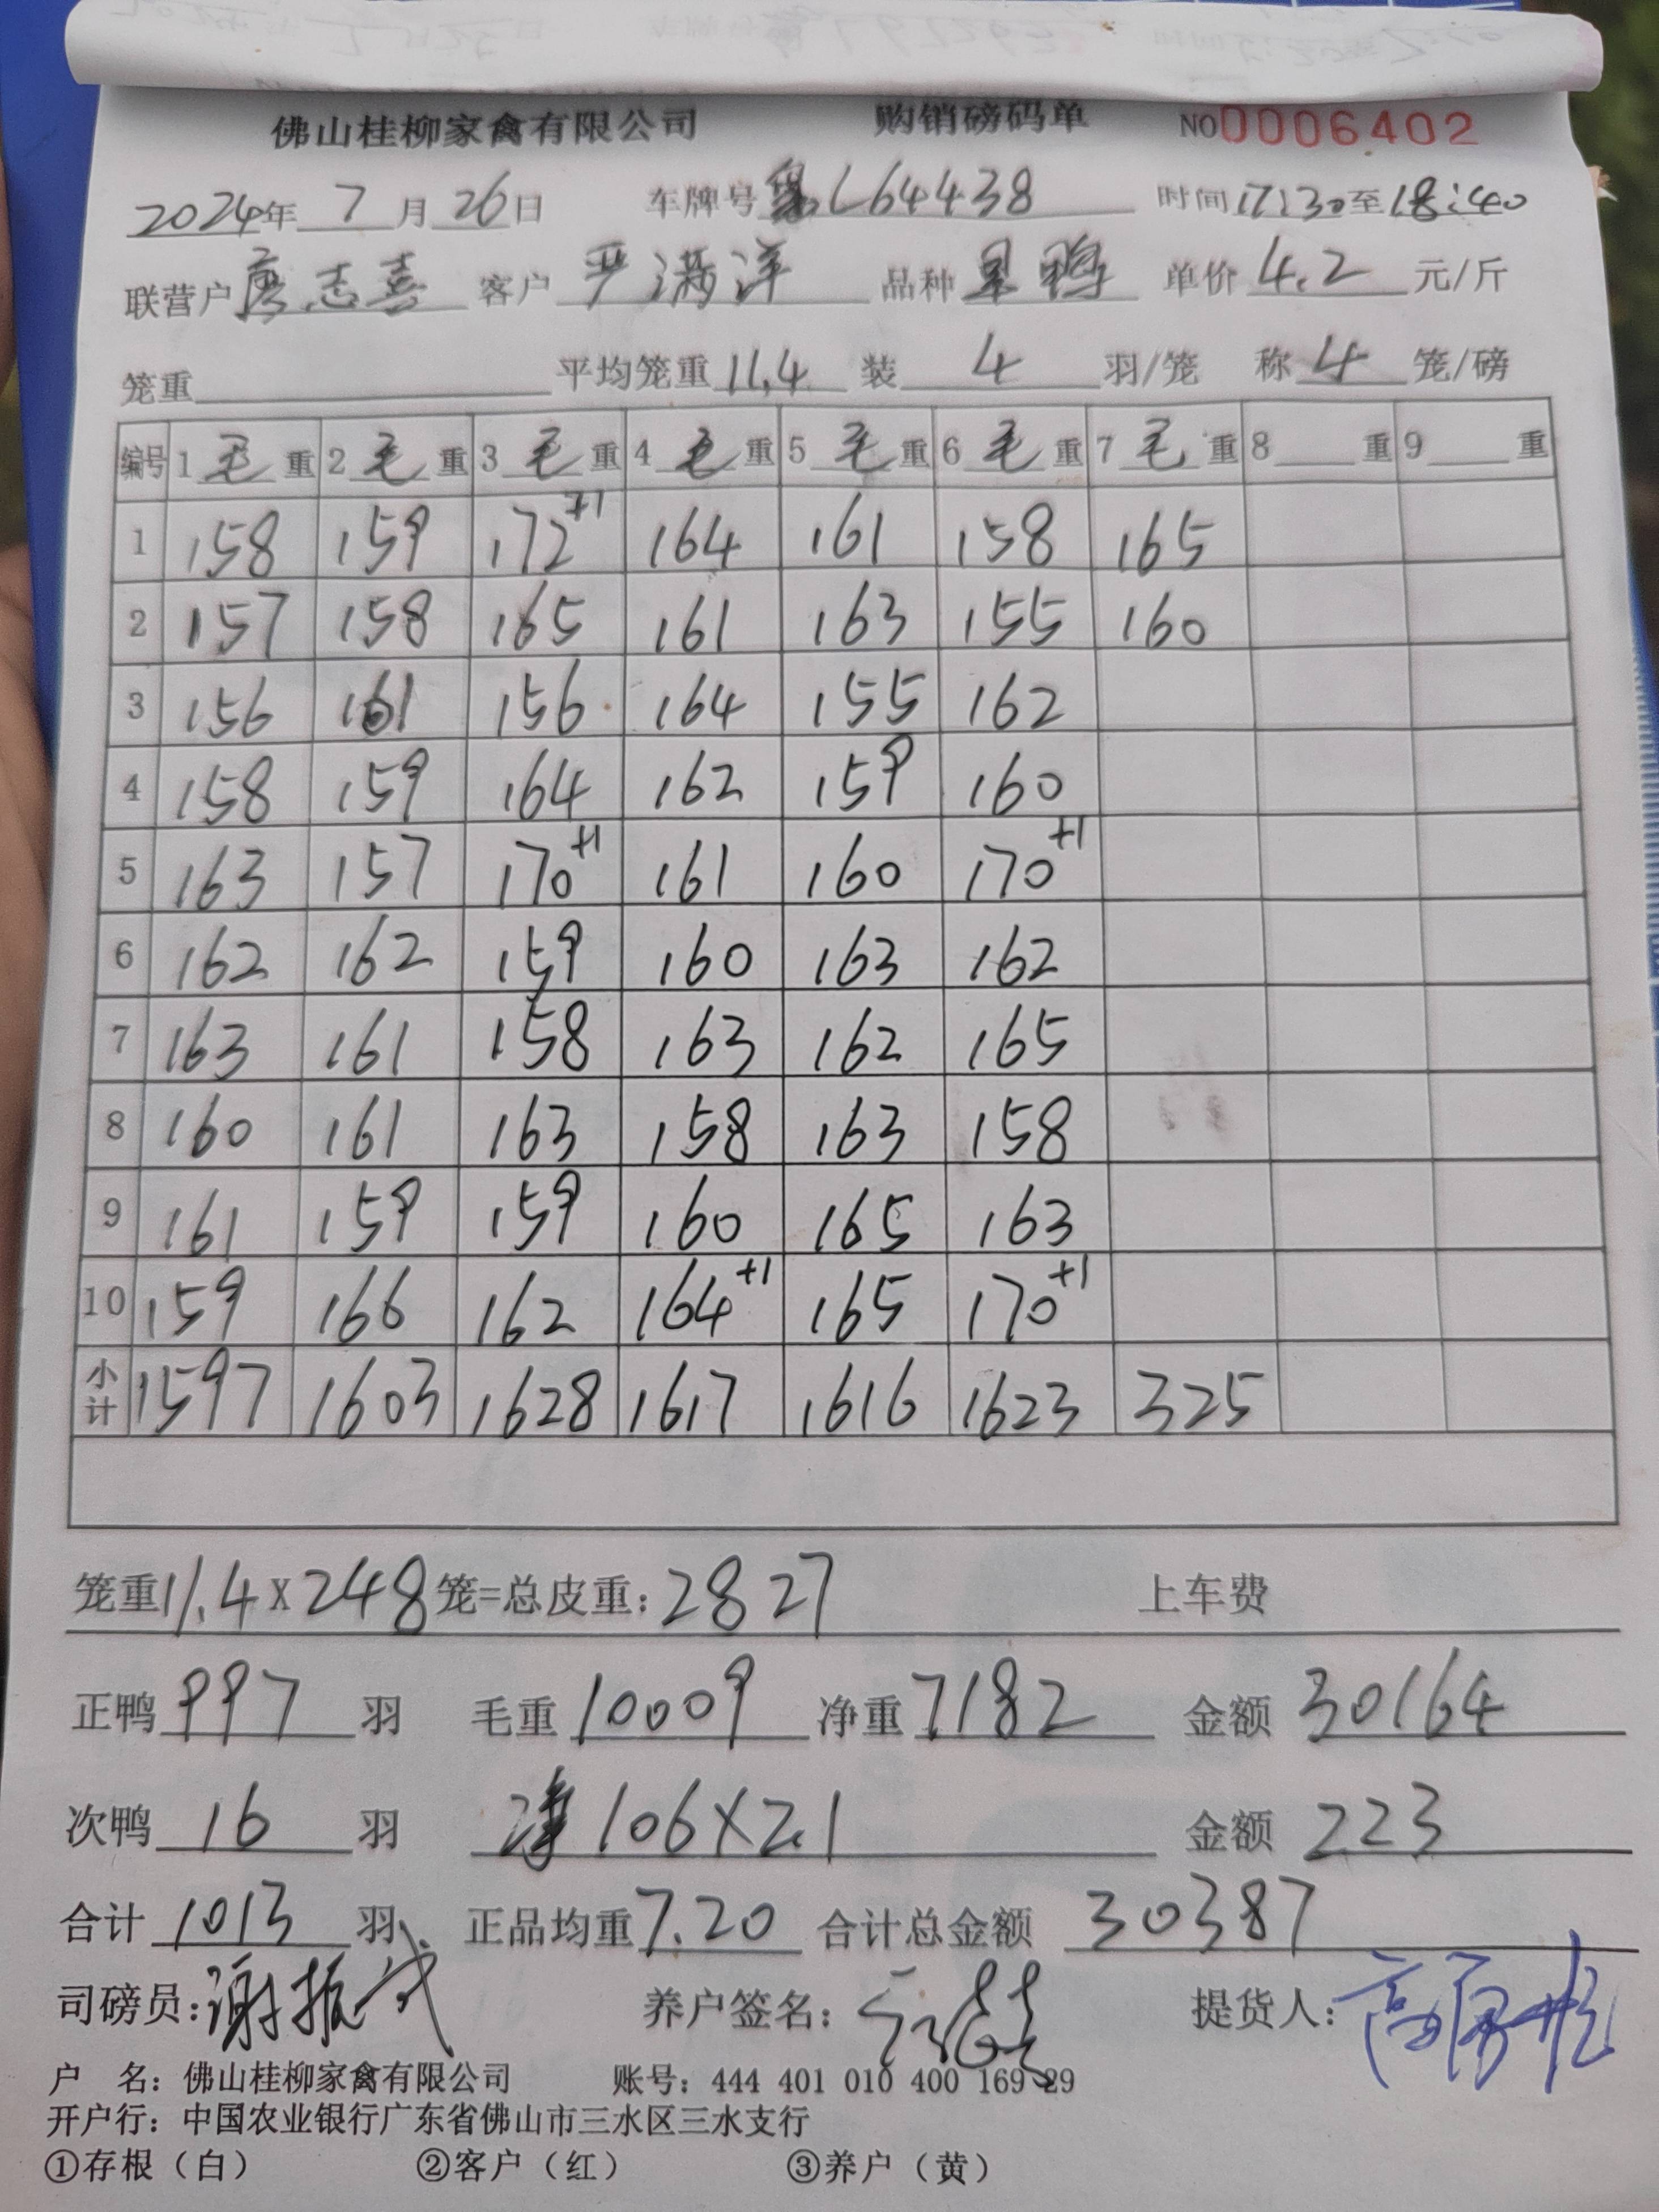 佛山桂柳家禽有限公司 购销磅码单 NO0006402
2024年 7 月 26日 车牌号粤L64438 时间17:30至18:40
联营户廖志喜 客户 严满洋 品种 单价 4.2 元/斤
笼重 平均笼重 11.4 装 4 羽/笼 称 4 笼/磅
编号 1 毛 重 2 毛 重 3 毛 重 4 毛 重 5 毛 重 6 毛 重 7 毛 重 8 重 9 重
1 158 159 172+1 164 161 158 165
2 157 158 165 161 163 155 160
3 156 161 156 164 155 162
4 158 159 164 162 159 160
5 163 157 170+1 161 160 170+1
6 162 162 159 160 163 162
7 163 161 158 163 162 165
8 160 161 163 158 163 158
9 161 159 159 160 165 163
10 159 166 162 164+1 165 170+1
小计 1597 1603 1628 1617 1616 1623 325
笼重11.4X248笼=总皮重:2827 上车费
正鸭 997 羽 毛重 10009 净重 7182 金额 30164
次鸭 16 羽 净 106X2.1 金额 223
合计 1013 羽 正品均重 7.20 合计总金额 30387
司磅员:谢振武 养户签名: 提货人:
户 名: 佛山桂柳家禽有限公司 账号: 444 401 010 400 169 29
开户行: 中国农业银行广东省佛山市三水区三水支行
①存根（白） ②客户（红） ③养户（黄）